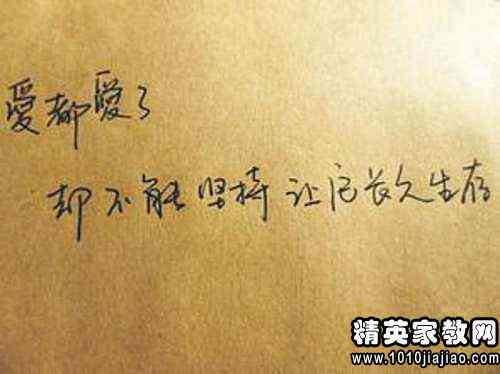 愛都愛了
却不能坚持让它长久生存
精英家教网
www.1010jiajiao.com